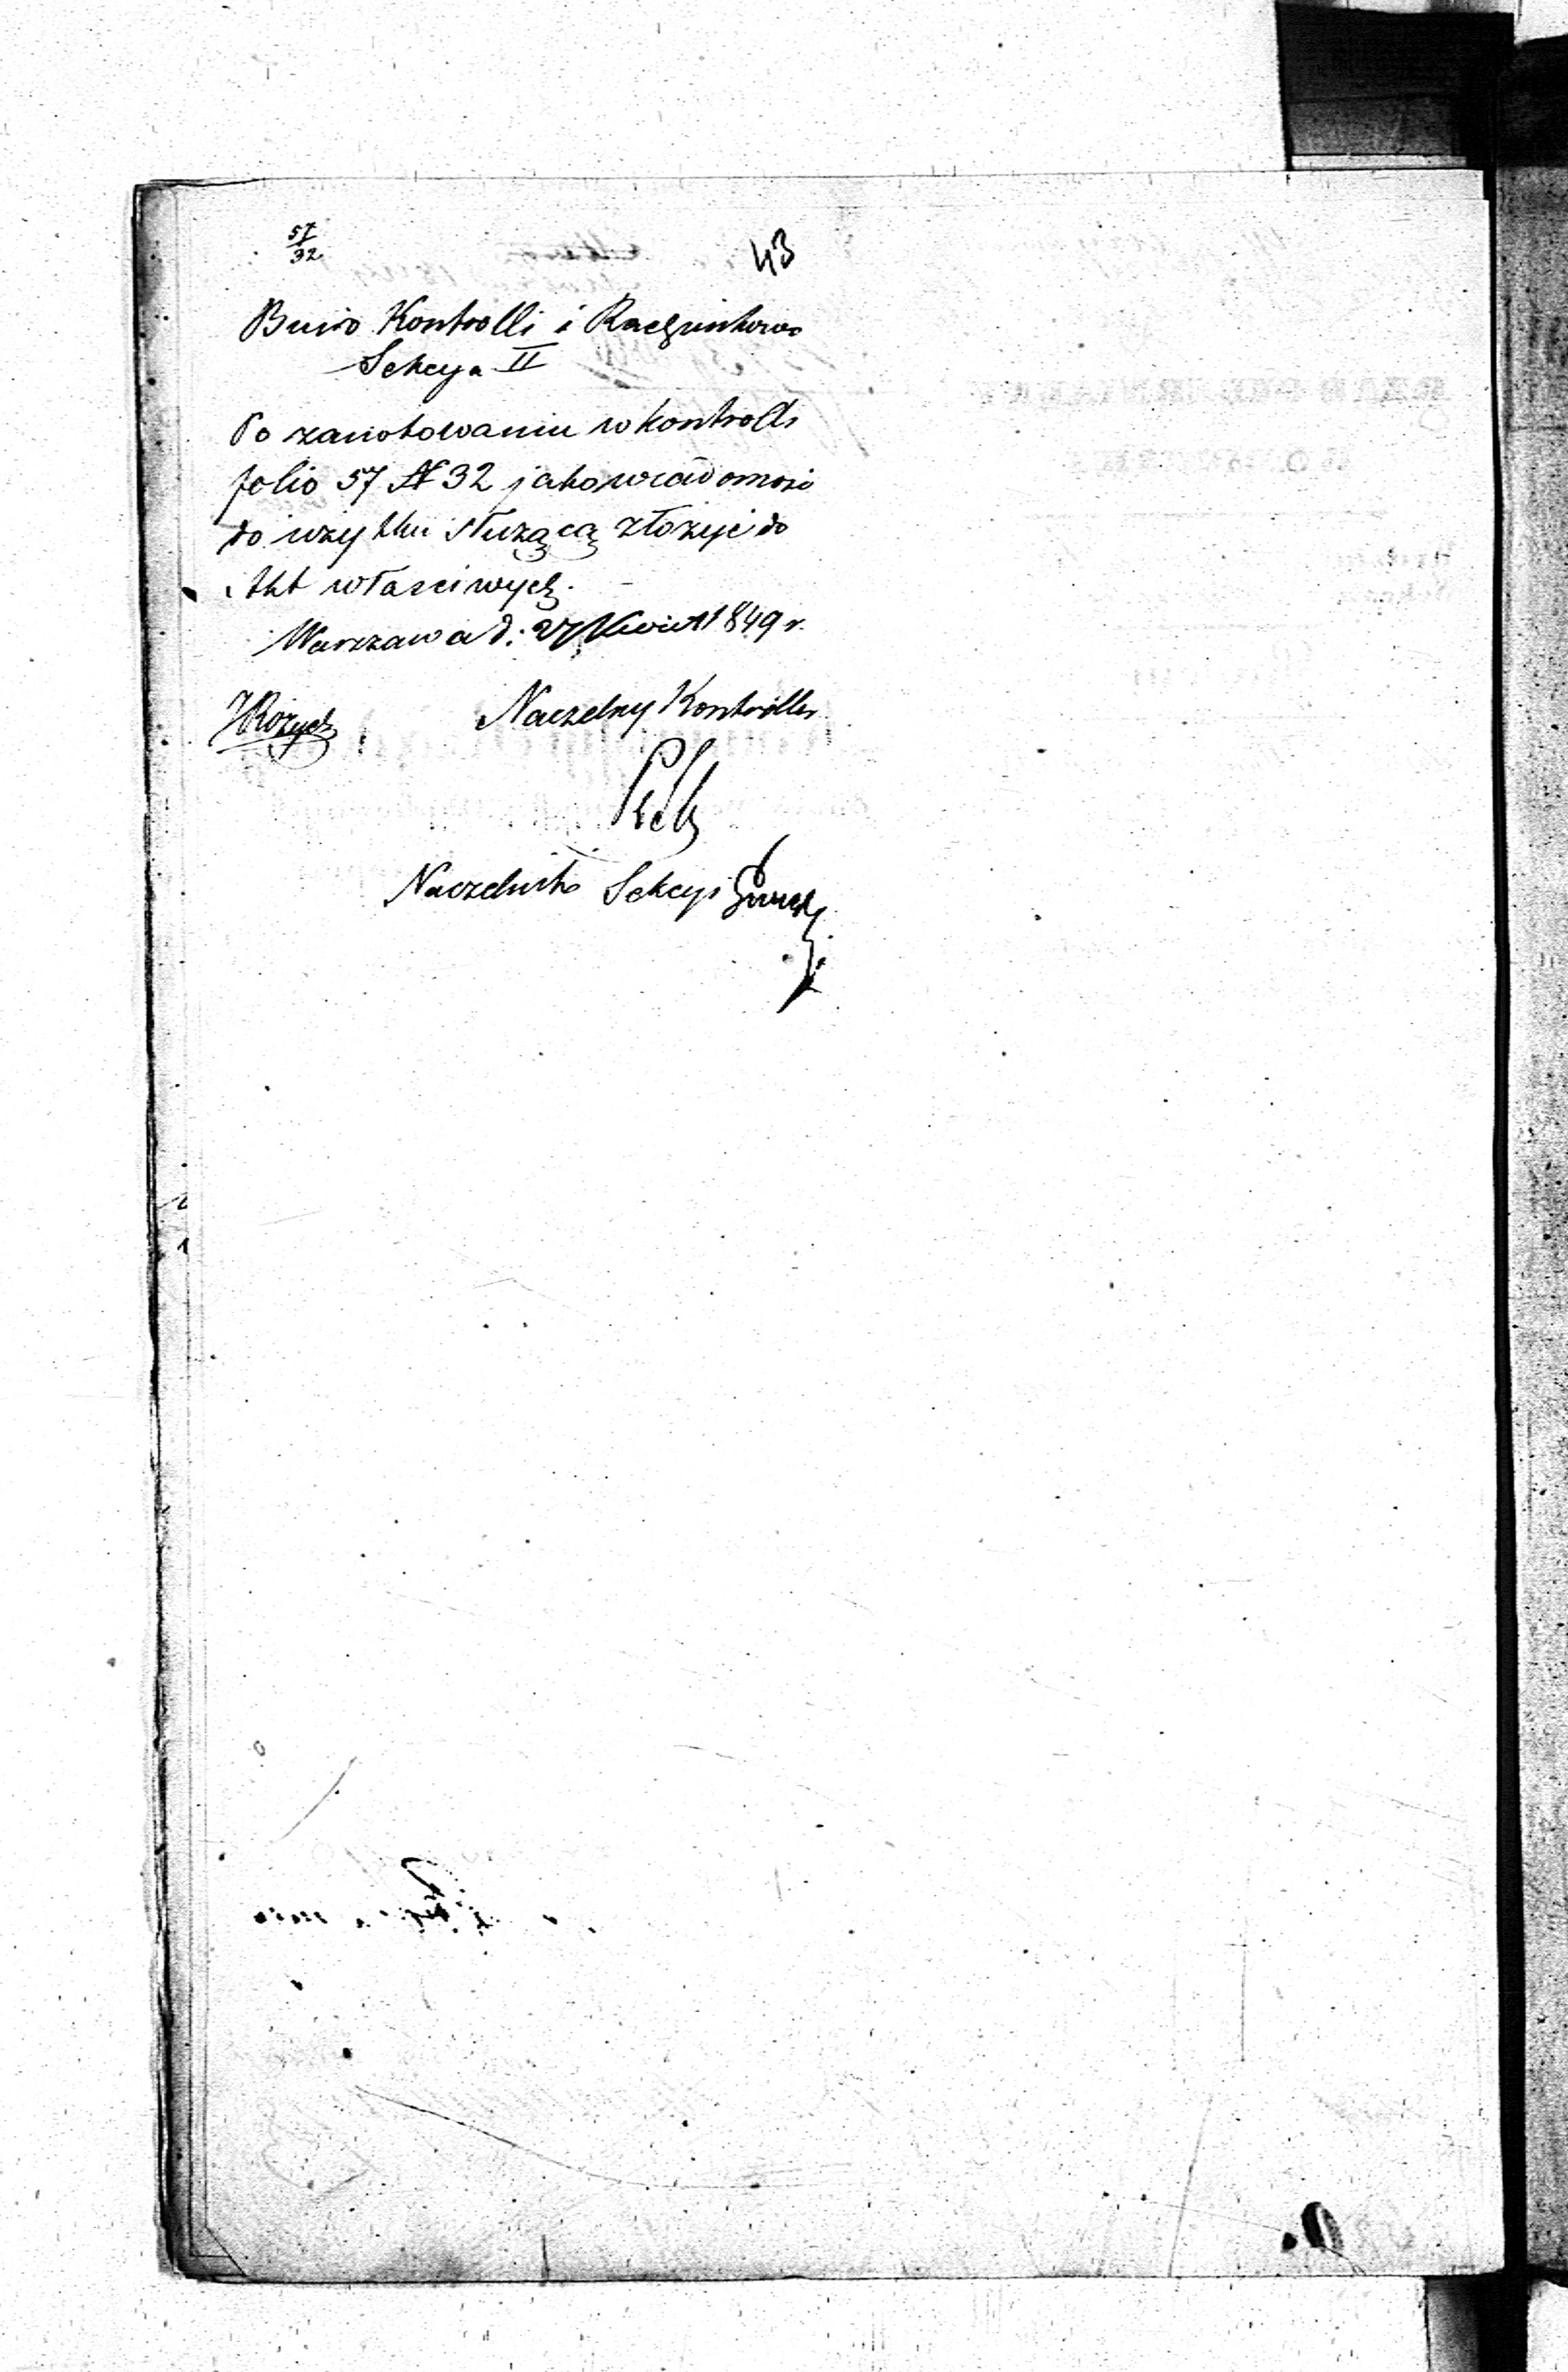 57
32
43
Biuro Kontrolli i Rachunkowo
Sekcya II
Po zanotowaniu w kontrolli
folio 57 N 32 jako wiadomość
do użytku służącą złożyć do
Akt właściwych.
Warszawa d: 27 Kwiet 1849 r.
Naczelny Kontroller
Naczelnik Sekcyi